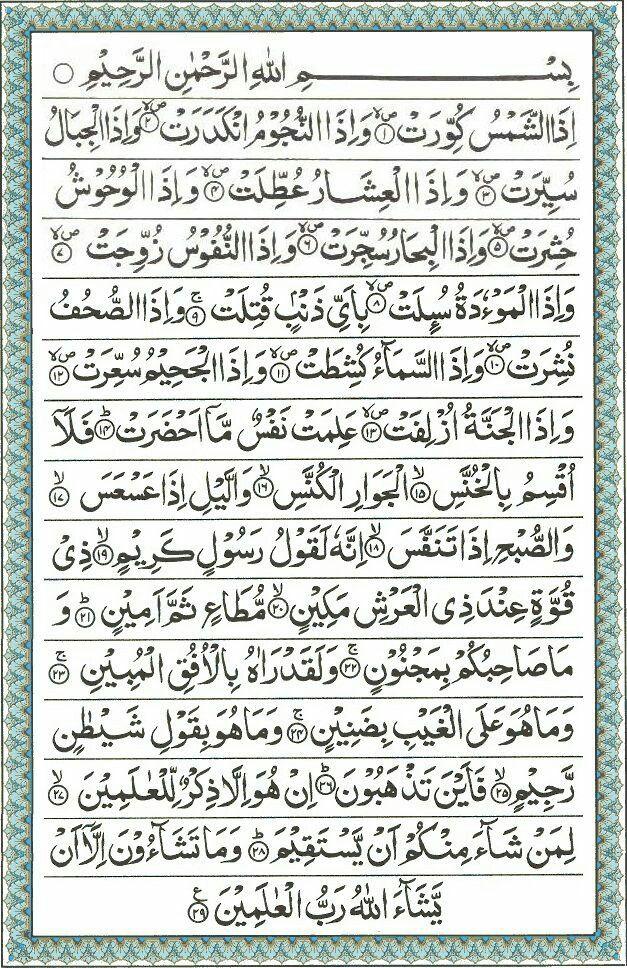 بِسْمِ اللهِ الرَّحْمٰنِ الرَّحِيْمِ ○
اِذَا الشَّمْسُ كُوِّرَتْ ۙ۝۱ وَاِذَا النُّجُوْمُ انْكَدَرَتْ ۙ۝۲ وَاِذَا الْجِبَالُ
سُيِّرَتْ ۙ۝۳ وَاِذَا الْعِشَارُ عُطِّلَتْ ۙ۝۴ وَاِذَا الْوُحُوْشُ
حُشِرَتْ ۙ۝۵ وَاِذَا الْبِحَارُ سُجِّرَتْ ۙ۝۶ وَاِذَا النُّفُوْسُ زُوِّجَتْ ۙ۝۷
وَاِذَا الْمَوْءٗدَةُ سُىِٕلَتْ ۙ۝۸ بِاَيِّ ذَنْۢبٍ قُتِلَتْ ۚ۝۹ وَاِذَا الصُّحُفُ
نُشِرَتْ ۙ۝۱۰ وَاِذَا السَّمَآءُ كُشِطَتْ ۙ۝۱۱ وَاِذَا الْجَحِيْمُ سُعِّرَتْ ۙ۝۱۲
وَاِذَا الْجَنَّةُ اُزْلِفَتْ ۙ۝۱۳ عَلِمَتْ نَفْسٌ مَّاۤ اَحْضَرَتْ ؕ۝۱۴ فَلَاۤ
اُقْسِمُ بِالْخُنَّسِ ۙ۝۱۵ الْجَوَارِ الْكُنَّسِ ۙ۝۱۶ وَالَّيْلِ اِذَا عَسْعَسَ ۙ۝۱۷
وَالصُّبْحِ اِذَا تَنَفَّسَ ۙ۝۱۸ اِنَّهٗ لَقَوْلُ رَسُوْلٍ كَرِيْمٍ ۙ۝۱۹ ذِيْ
قُوَّةٍ عِنْدَ ذِي الْعَرْشِ مَكِيْنٍ ۙ۝۲۰ مُّطَاعٍ ثَمَّ اَمِيْنٍ ؕ۝۲۱ وَ
مَا صَاحِبُكُمْ بِمَجْنُوْنٍ ۚ۝۲۲ وَلَقَدْ رَاٰهُ بِالْاُفُقِ الْمُبِيْنِ ۚ۝۲۳
وَمَا هُوَ عَلَى الْغَيْبِ بِضَنِيْنٍ ۚ۝۲۴ وَمَا هُوَ بِقَوْلِ شَيْطٰنٍ
رَّجِيْمٍ ۙ۝۲۵ فَاَيْنَ تَذْهَبُوْنَ ؕ۝۲۶ اِنْ هُوَ اِلَّا ذِكْرٌ لِّلْعٰلَمِيْنَ ۙ۝۲۷
لِمَنْ شَآءَ مِنْكُمْ اَنْ يَّسْتَقِيْمَ ؕ۝۲۸ وَمَا تَشَآءُوْنَ اِلَّاۤ اَنْ
يَّشَآءَ اللهُ رَبُّ الْعٰلَمِيْنَ ۝۲۹ ع